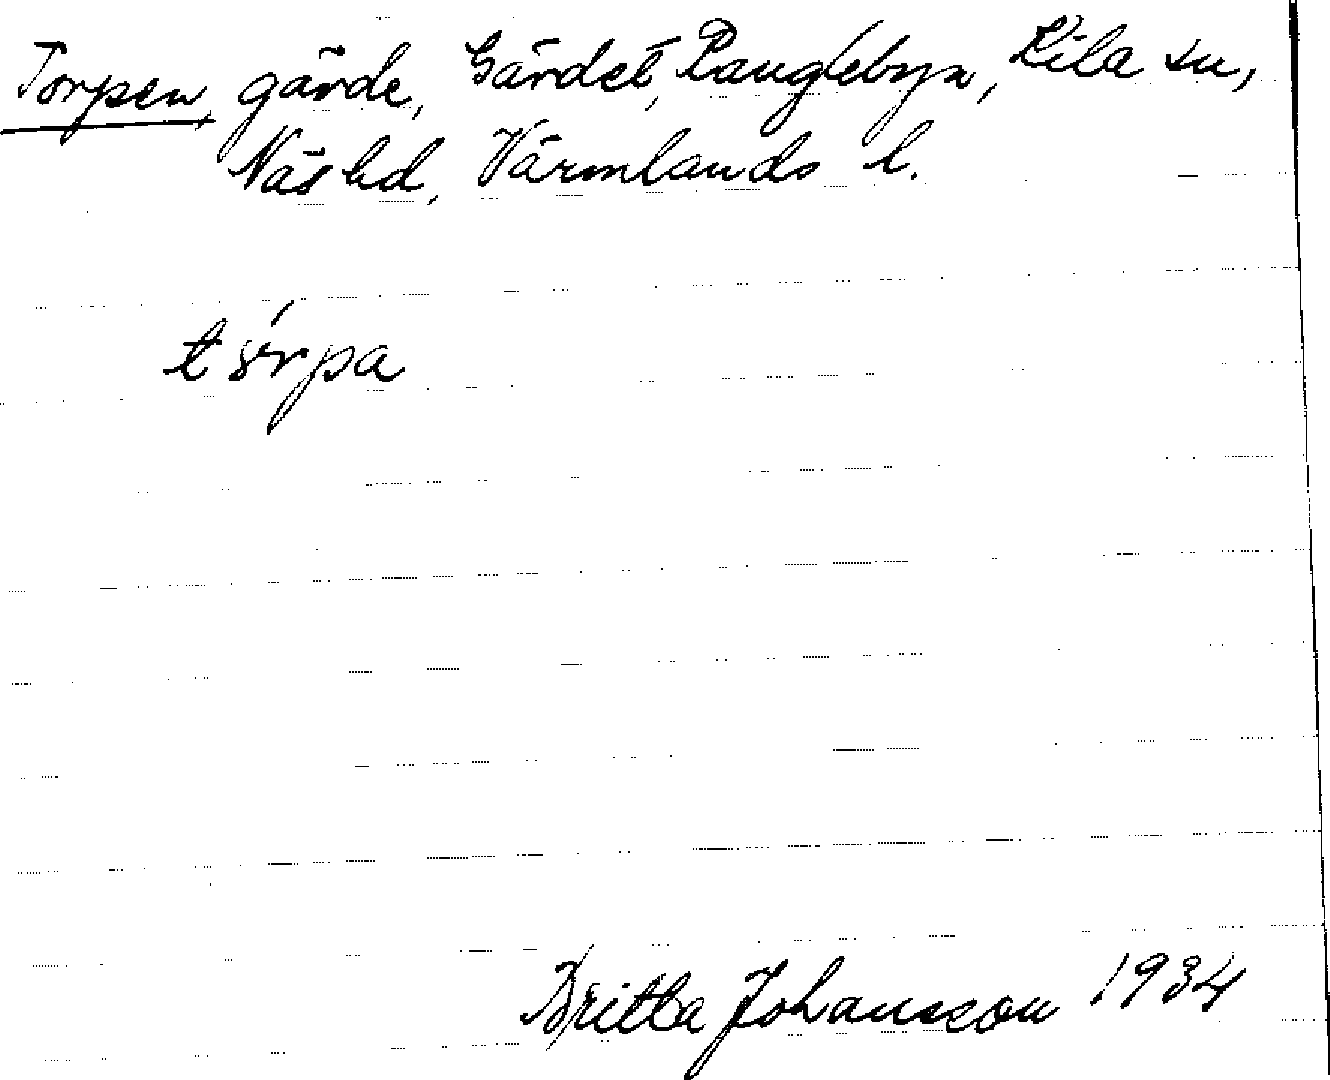 Torpen, gärde, Gärdet, Ranglebyn, Kila sn,
Näs hd, Värmlands l.
Britta Johansson 1934